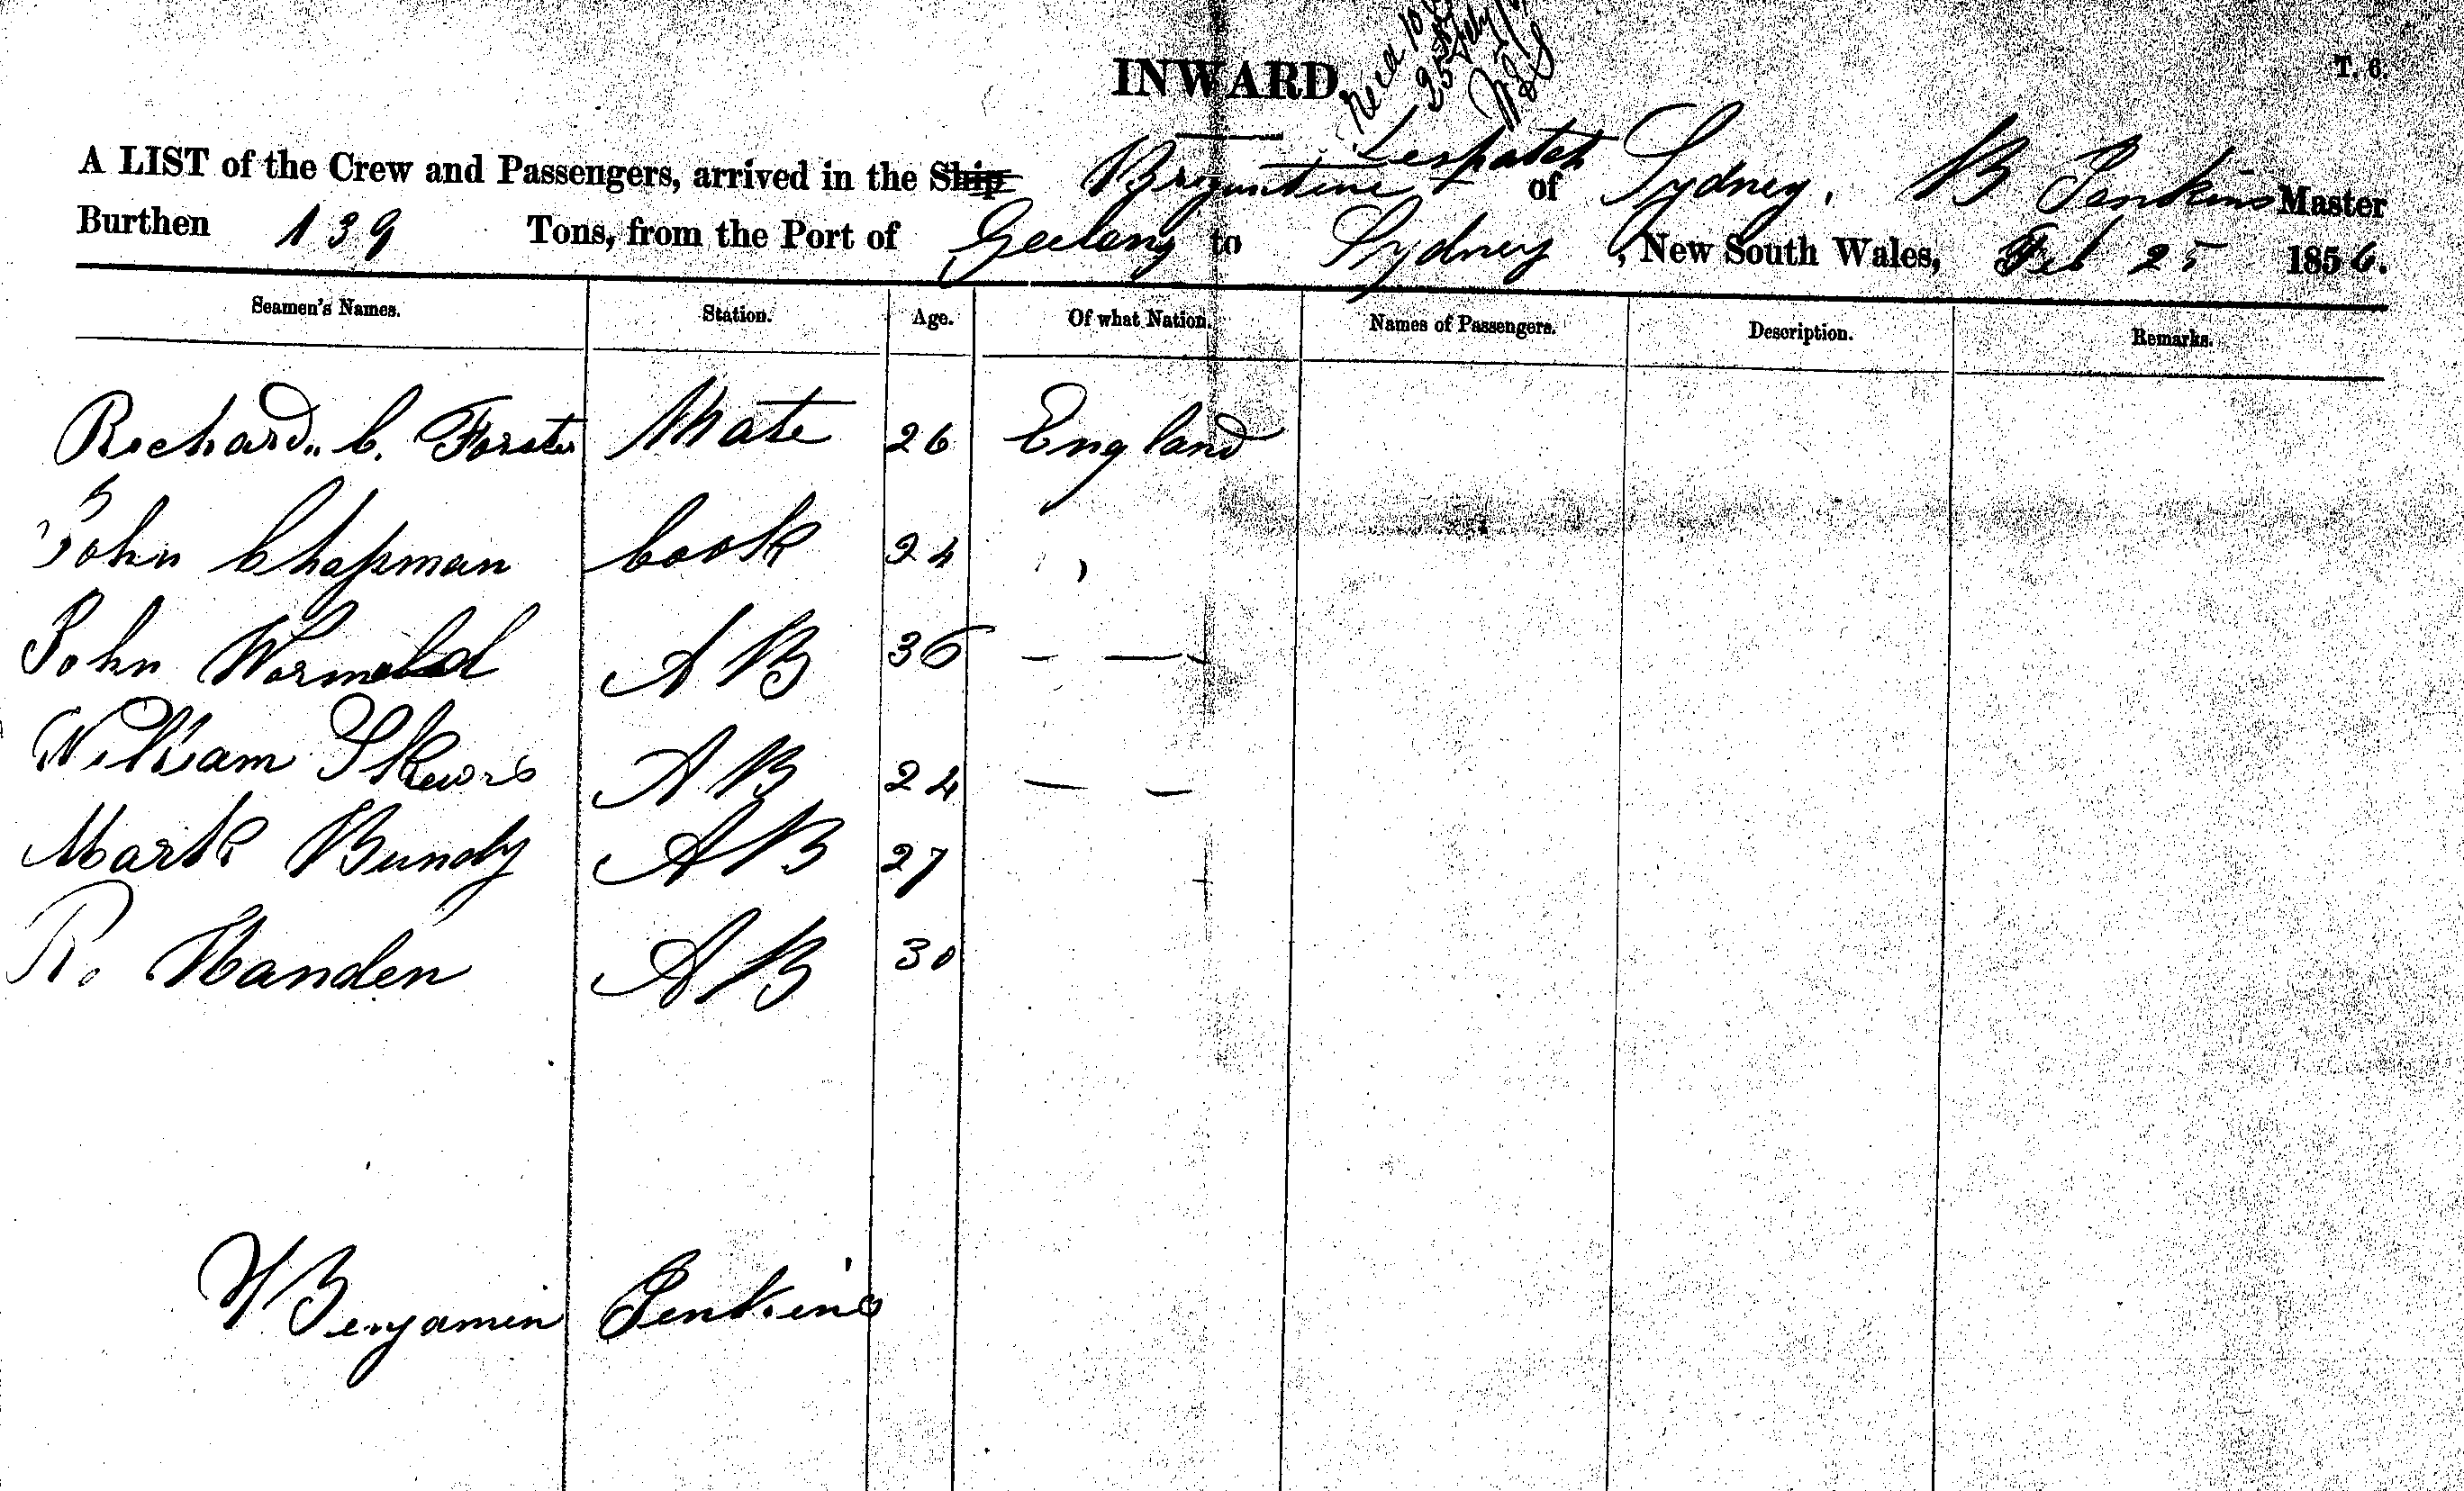 INWARD.
T. 6.
A LIST of the Crew and Passengers, arrived in the Ship Brigantine Despatch of Sydney, B Jenkins Master
Burthen 139 Tons, from the Port of Geelong to Sydney, New South Wales, Feb 25 1856.
Seamen's Names. Station. Age. Of what Nation. Names of Passengers. Description. Remarks.
Richard C. Forster Mate 26 England
John Chapman Cook 24
John Wormald AB 36 — —
William Skews AB 24 — —
Mark Bundy AB 27
R. AB 30
Benjamin Jenkins